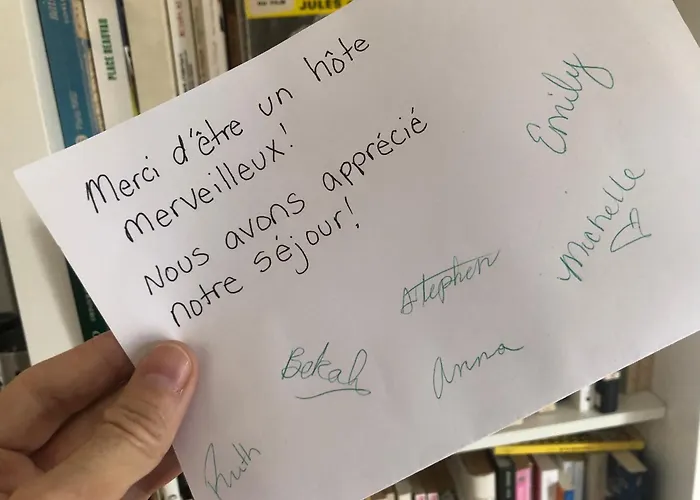 JULES
PLACE BEAUVAU
Merci d'être un hôte
merveilleux!
Nous avons apprécié
notre séjour!
Emily
Michelle
Stephen
Bekah
Anna
Ruth